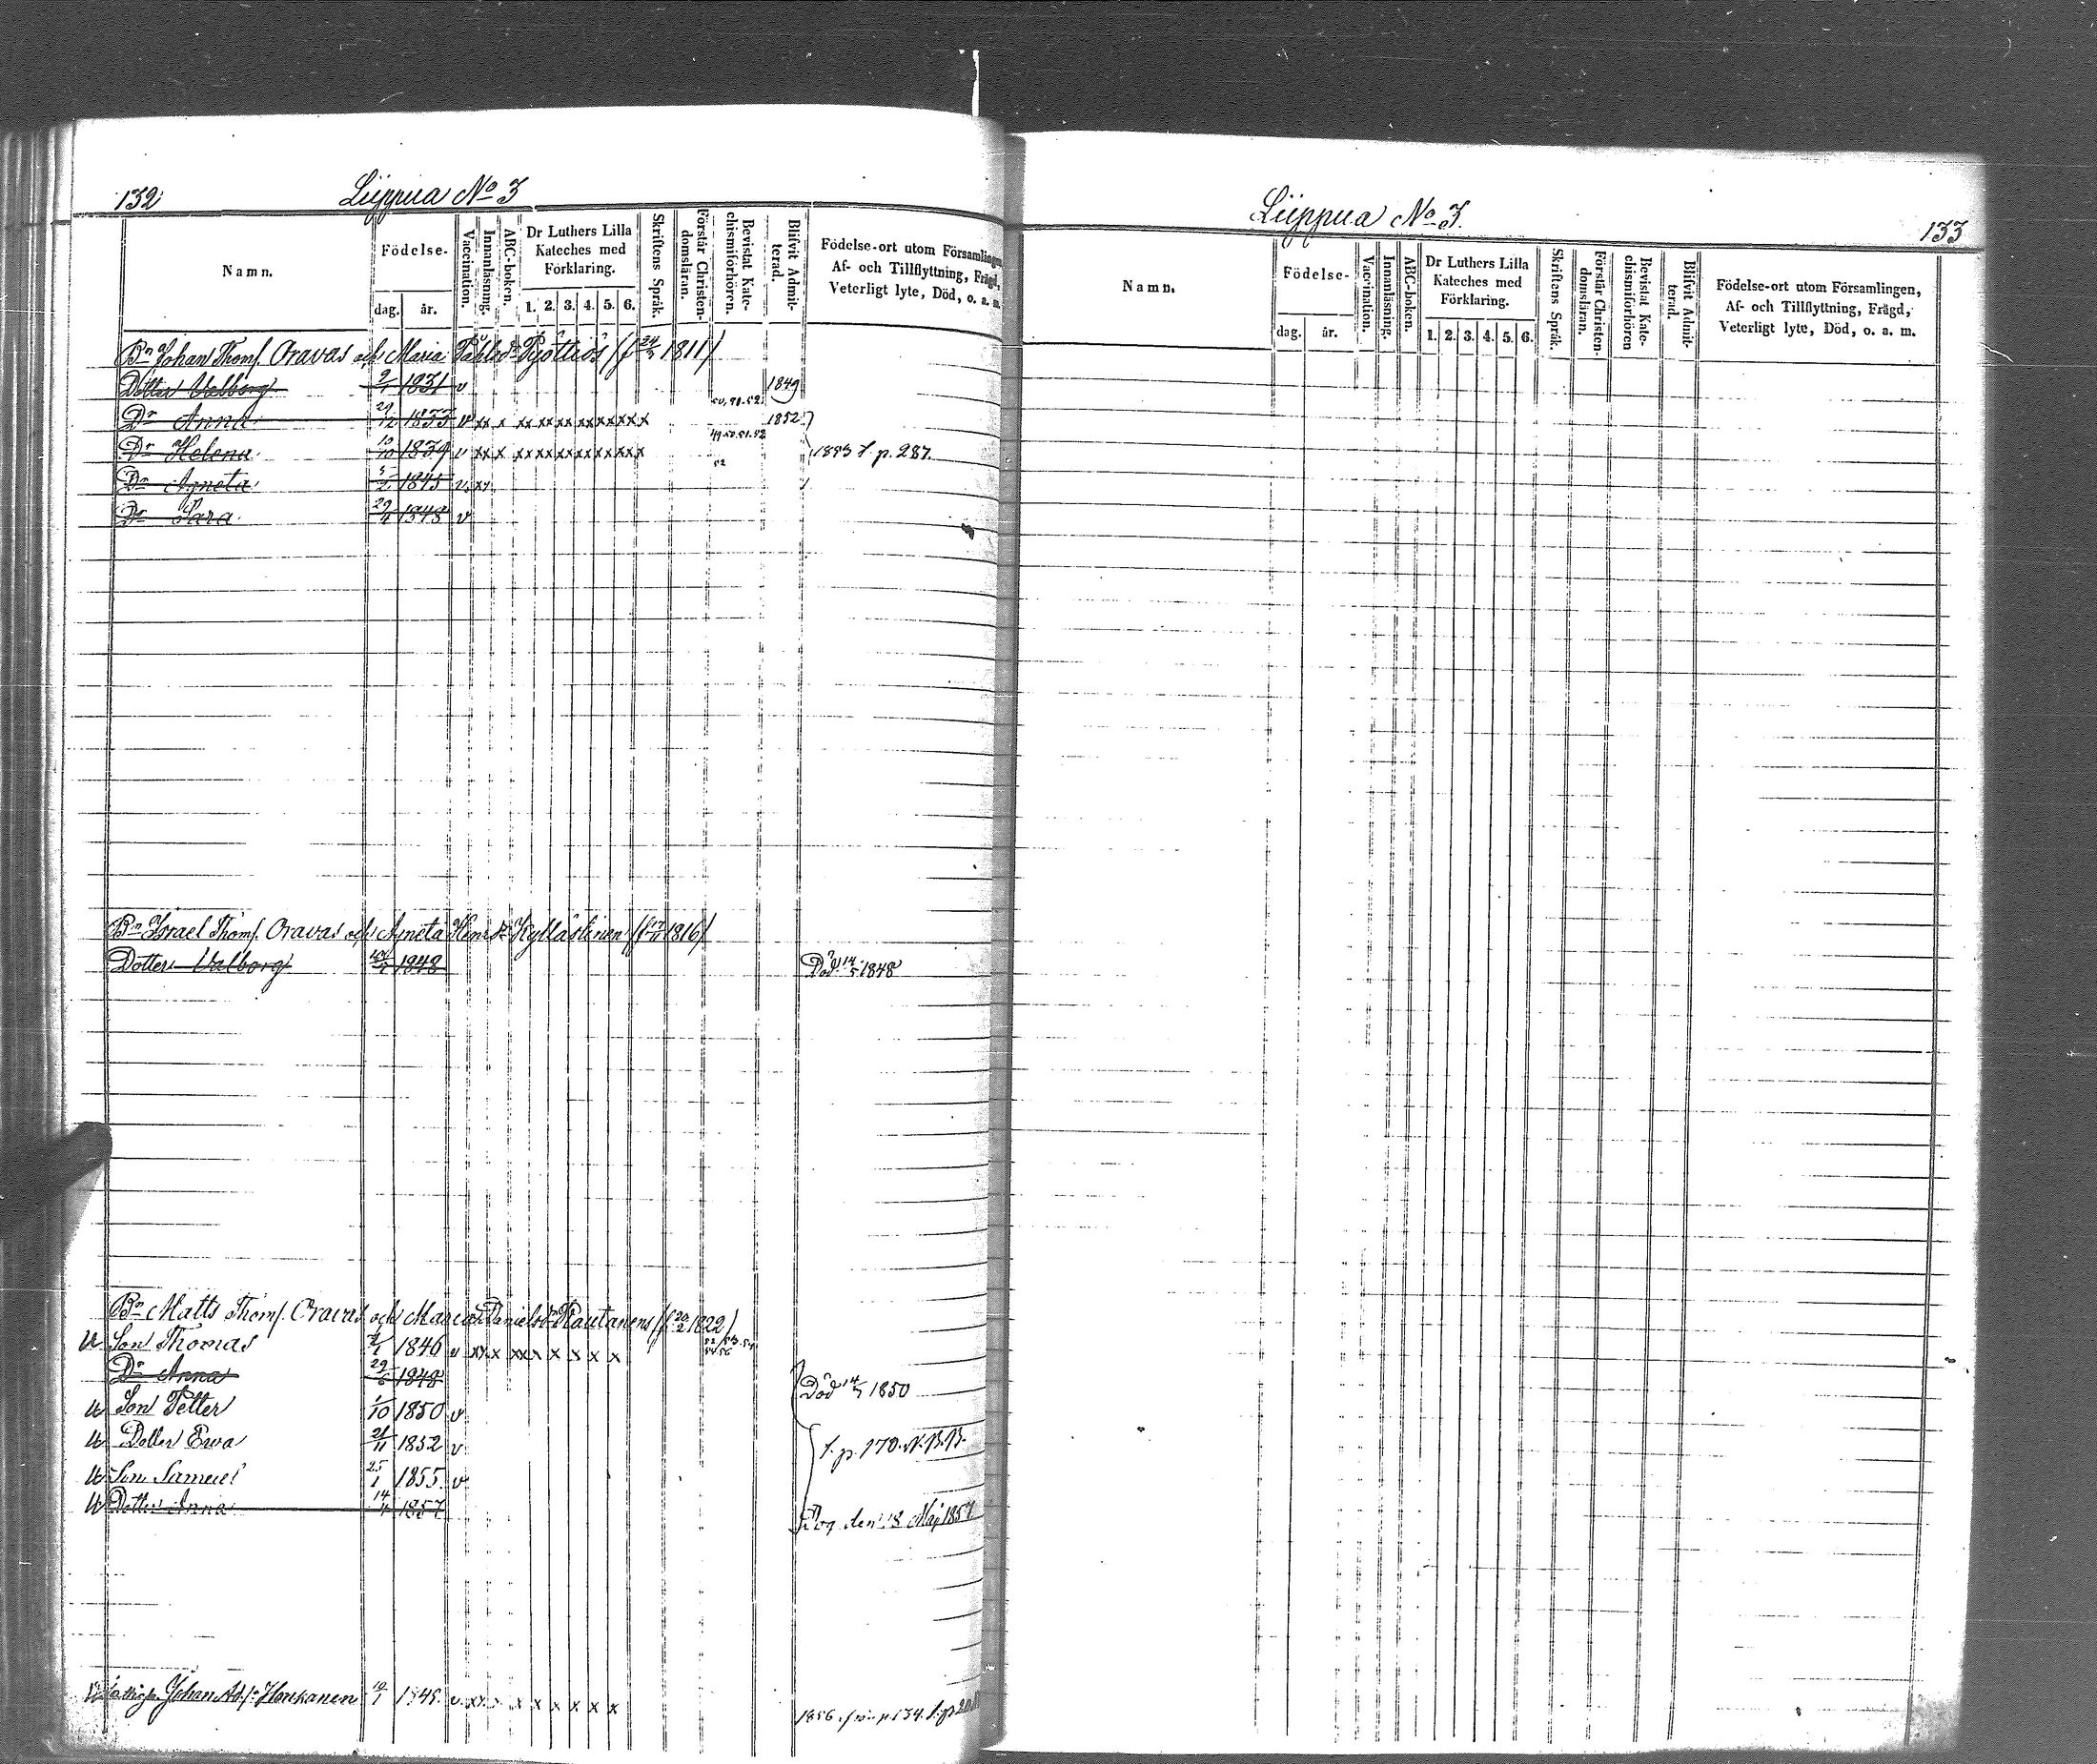 132
Liippua No 3
Namn.
Födelse-
dag. år.
Vaccination.
Innanläsning.
ABC-boken.
Dr Luthers Lilla
Kateches med
Förklaring.
1. 2. 3. 4. 5. 6.
Skriftens Språk.
Förstår Christen-
domsläran.
Bevistat Kate-
chismiförhören.
Blifvit Admit-
terad.
Födelse-ort utom Församlingen,
Af- och Tillflyttning, Frägd,
Veterligt lyte, Död, o. a. m.
Bn Johan Thoms. Oravas och Maria 1811
Dotter Valborg 1831 v 1849
Dr Anna 29/12 1833 v xx x xx xx xx xx xx xx x 1852
Dr Helena 10/10 1839 v xx x xx xx xx xx xx xx x 49.50.51.52 1853 f. p. 287.
Dr Agneta 1845 v xx 52
Dr Sara 1848 v
Bn Israel Thoms. Oravas och Agneta Henrsdr Kyllästinen 1816
Dotter Valborg 1848 Död 14/5 1848
Bn Matts Thoms. Oravas och Maria Danielsdr Rautanen (f. 20/2 1822)
Son Thomas 1846 v xx x xx x x x x x
Dr Anna 29/6 1848 Död 1850
Son Petter 1/10 1850 v
Dotter Ewa 21/11 1852 v f. p. 170. N.B.B.
Son Samuel 25/1 1855 v
Dotter Anna 1857 Dog den 18 Maj 1857
Johan Ads. Honkanen 1845 v xx x x x x x x 1856 från p. 134.
Liippua No 3.
133
Namn.
Födelse-
dag. år.
Vaccination.
Innanläsning.
ABC-boken.
Dr Luthers Lilla
Kateches med
Förklaring.
1. 2. 3. 4. 5. 6.
Skriftens Språk.
Förstår Christen-
domsläran.
Bevistat Kate-
chismiförhören
Blifvit Admit-
terad.
Födelse-ort utom Församlingen,
Af- och Tillflyttning, Frägd,
Veterligt lyte, Död, o. a. m.